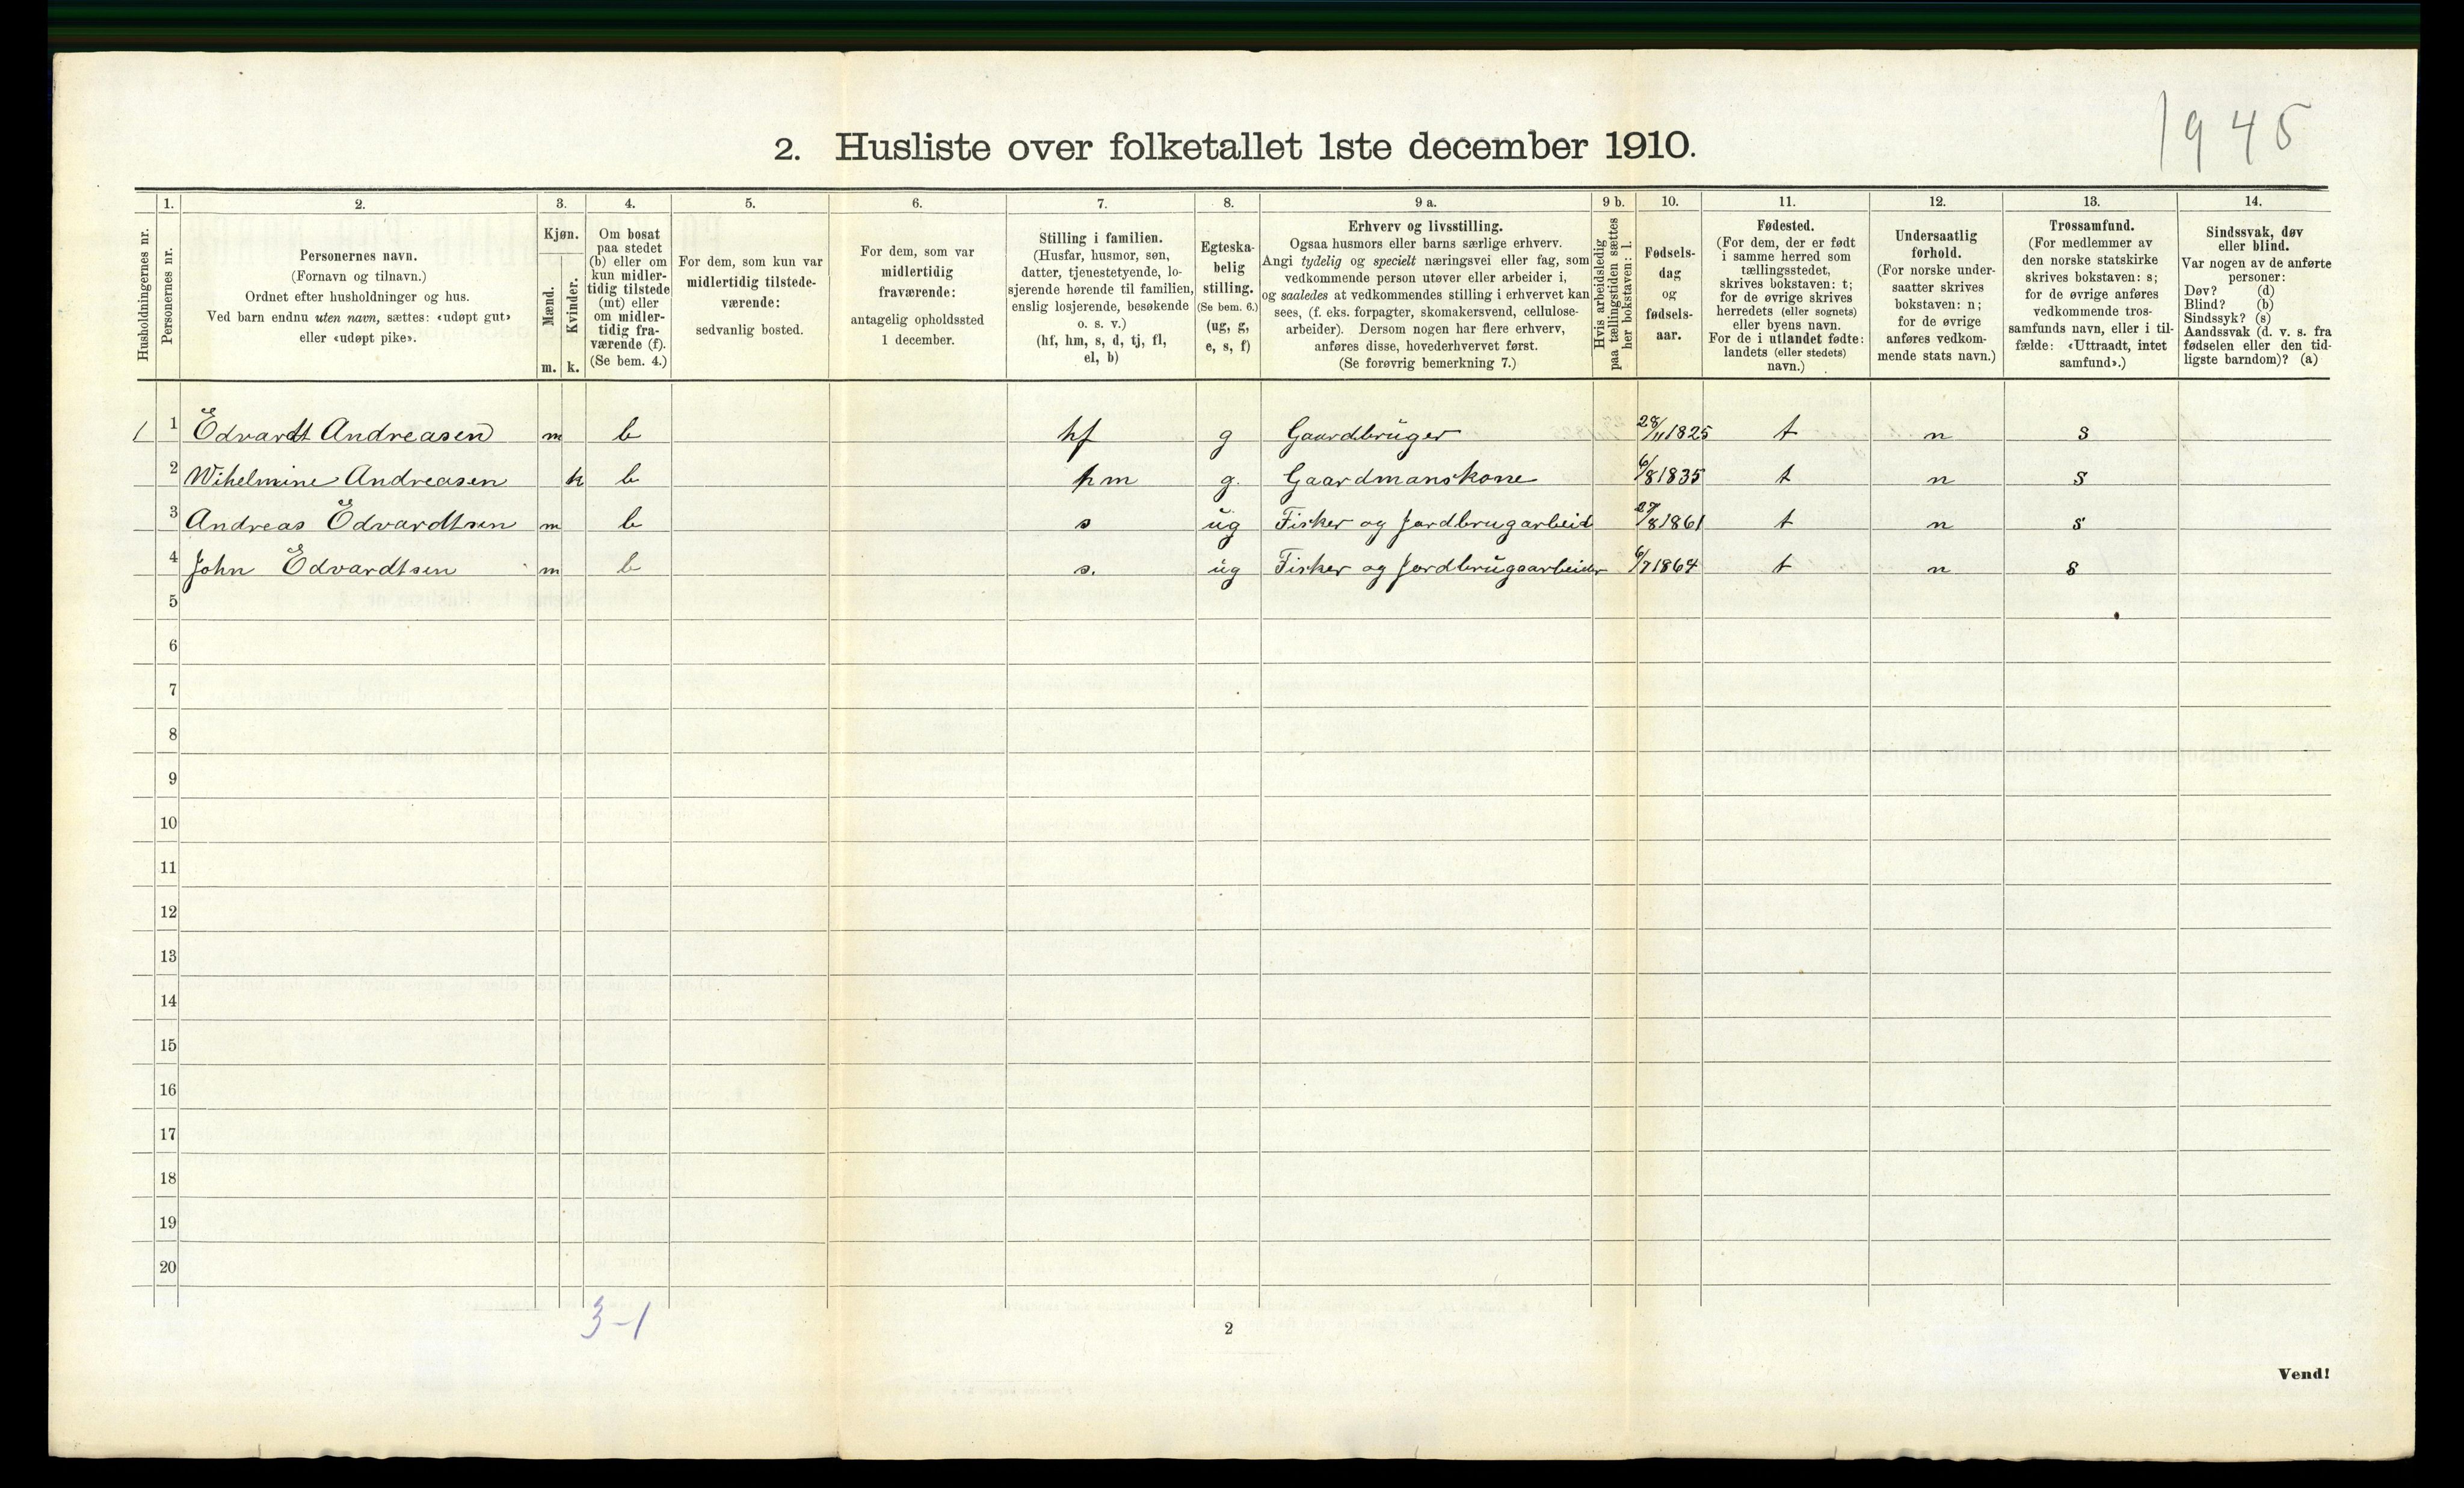 1945
2. Husliste over folketallet 1ste december 1910.
1. 2. 3. 4. 5. 6. 7. 8. 9 a. 9 b. 10. 11. 12. 13. 14.
Husholdningernes nr.
Personernes nr.
Personernes navn.
(Fornavn og tilnavn.)
Ordnet efter husholdninger og hus.
Ved barn endnu uten navn, sættes: «udøpt gut»
eller «udøpt pike».
Kjøn.
Mænd.
Kvinder.
m. k.
Om bosat
paa stedet
(b) eller om
kun midler-
tidig tilstede
(mt) eller
om midler-
tidig fra-
værende (f).
(Se bem. 4.)
For dem, som kun var
midlertidig tilstede-
værende:
sedvanlig bosted.
For dem, som var
midlertidig
fraværende:
antagelig opholdssted
1 december.
Stilling i familien.
(Husfar, husmor, søn,
datter, tjenestetyende, lo-
sjerende hørende til familien,
enslig losjerende, besøkende
o. s. v.)
(hf, hm, s, d, tj, fl,
el, b)
Egteska-
belig
stilling.
(Se bem. 6.)
(ug, g,
e, s, f)
Erhverv og livsstilling.
Ogsaa husmors eller barns særlige erhverv.
Angi tydelig og specielt næringsvei eller fag, som
vedkommende person utøver eller arbeider i,
og saaledes at vedkommendes stilling i erhvervet kan
sees, (f. eks. forpagter, skomakersvend, cellulose-
arbeider). Dersom nogen har flere erhverv,
anføres disse, hovederhvervet først.
(Se forøvrig bemerkning 7.)
Hvis arbeidsledig
paa tællingstiden sættes
her bokstaven: l.
Fødsels-
dag
og
fødsels-
aar.
Fødested.
(For dem, der er født
i samme herred som
tællingsstedet,
skrives bokstaven: t;
for de øvrige skrives
herredets (eller sognets)
eller byens navn.
For de i utlandet fødte:
landets (eller stedets)
navn.)
Undersaatlig
forhold.
(For norske under-
saatter skrives
bokstaven: n;
for de øvrige
anføres vedkom-
mende stats navn.)
Trossamfund.
(For medlemmer av
den norske statskirke
skrives bokstaven: s;
for de øvrige anføres
vedkommende tros-
samfunds navn, eller i til-
fælde: «Uttraadt, intet
samfund».)
Sindssvak, døv
eller blind.
Var nogen av de anførte
personer:
Døv? (d)
Blind? (b)
Sindssyk? (s)
Aandssvak (d. v. s. fra
fødselen eller den tid-
ligste barndom)? (a)
1 1 Edvardt Andreasen m b hf g Gaardbrüger 28/11 1825 t n s
2 Wihelmine Andreasen k b hm g. Gaardmanskone 6/8 1835 t n s
3 Andreas Edvardtsen m b s üg Fisker og Jordbrugarbeid 27/8 1861 t n s
4 John Edvardtsen m b s. üg Fisker og Jordbrügaarbeider 6/7 1864 t n s
5
6
7
8
9
10
11
12
13
14
15
16
17
18
19
20
3-1
2
Vend!